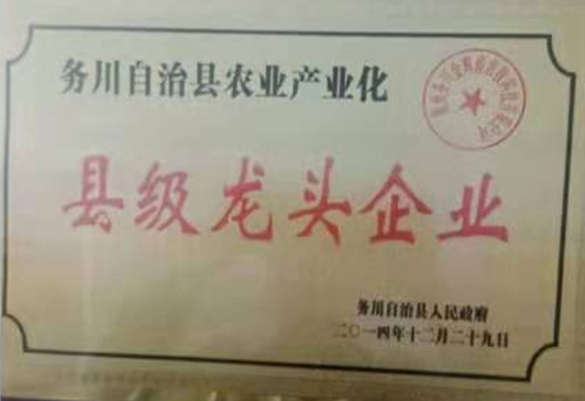 务川自治县农业产业化
县级龙头企业
务川自治县人民政府
二〇一四年十二月二十九日